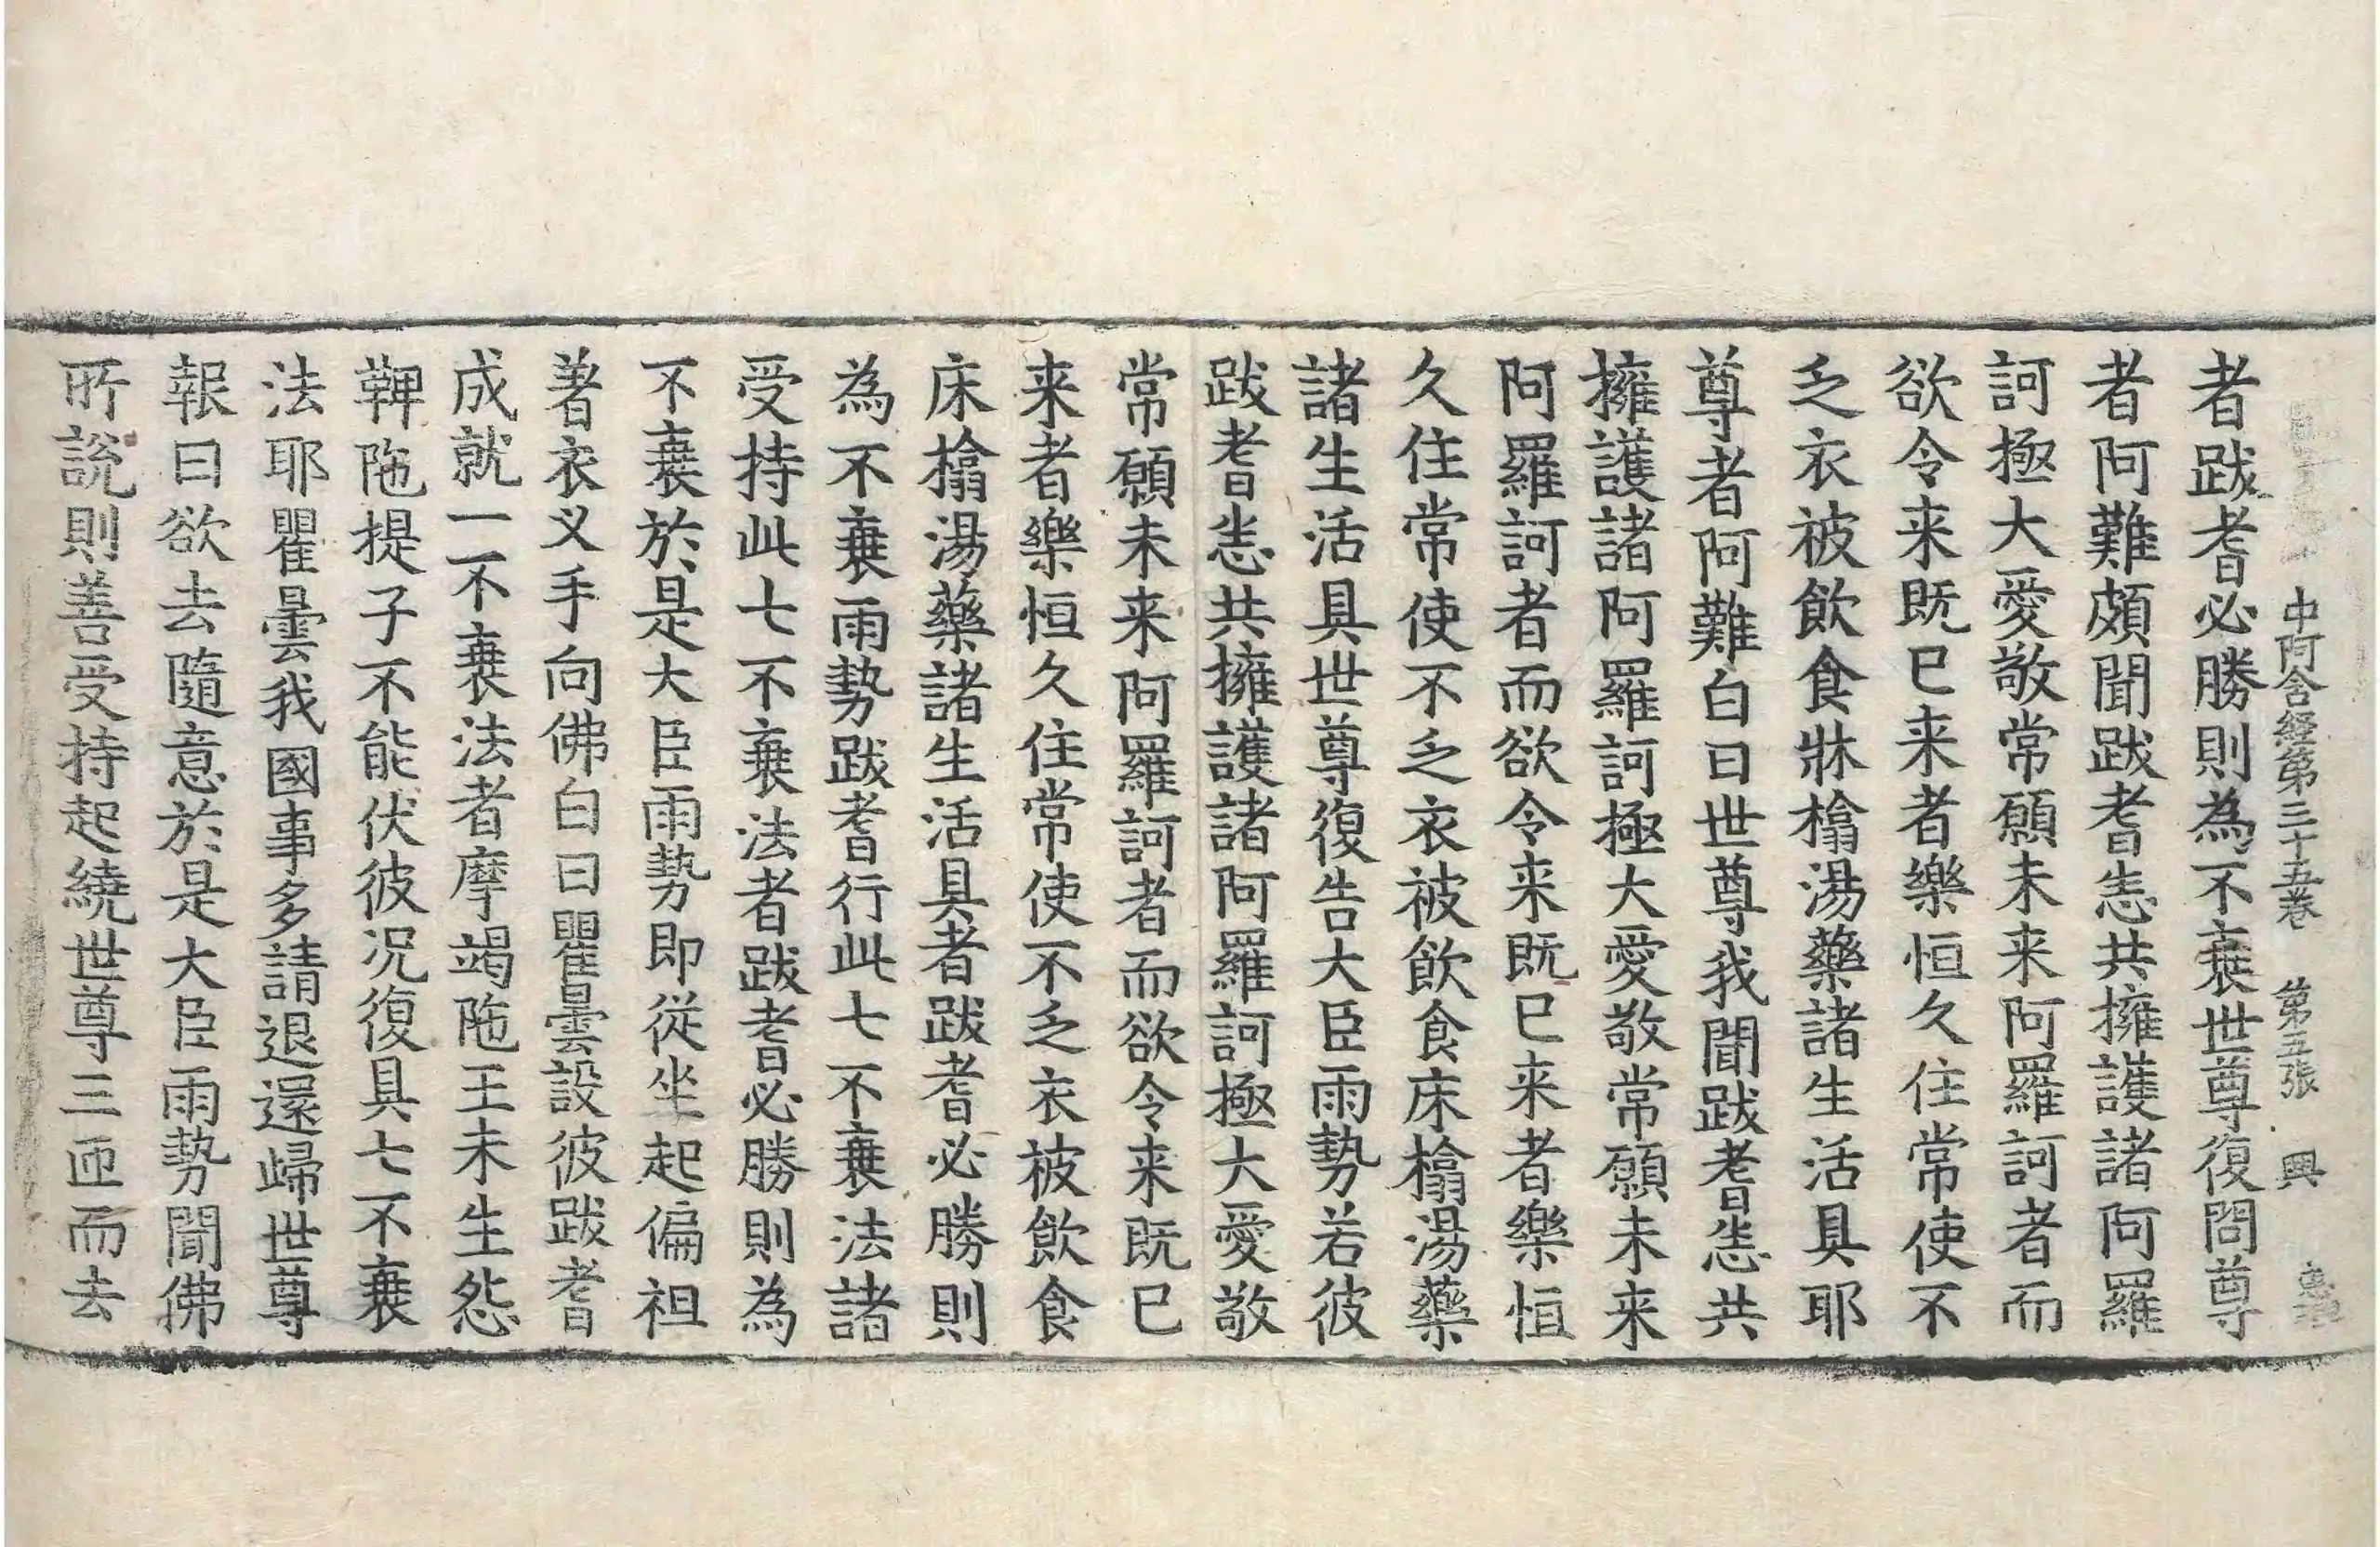 中阿含経第三十五巻 第五張 興
者跋耆必勝則為不衰世尊復問尊
者阿難頗聞跋耆恙共擁護諸阿羅
訶極大愛敬常願未来阿羅訶者而
欲令来既已来者樂恒久住常使不
乏衣被飲食牀榻湯藥諸生活具耶
尊者阿難白曰世尊我聞跋耆恙共
擁護諸阿羅訶極大愛敬常願未来
阿羅訶者而欲令来既已来者樂恒
久住常使不乏衣被飲食床榻湯藥
諸生活具世尊復告大臣雨勢若彼
跋耆恙共擁護諸阿羅訶極大愛敬
常願未来阿羅訶者而欲令来既已
来者樂恒久住常使不乏衣被飲食
床榻湯藥諸生活具者跋耆必勝則
為不衰雨勢跋耆行此七不衰法諸
受持此七不衰法者跋耆必勝則為
不衰於是大臣雨勢即從坐起偏袒
著衣叉手向佛白曰瞿曇設彼跋耆
成就一不衰法者摩竭陁王未生怨
鞞陁提子不能伏彼况復具七不衰
法耶瞿曇我國事多請退還歸世尊
報曰欲去隨意於是大臣雨勢聞佛
所說則善受持起繞世尊三匝而去